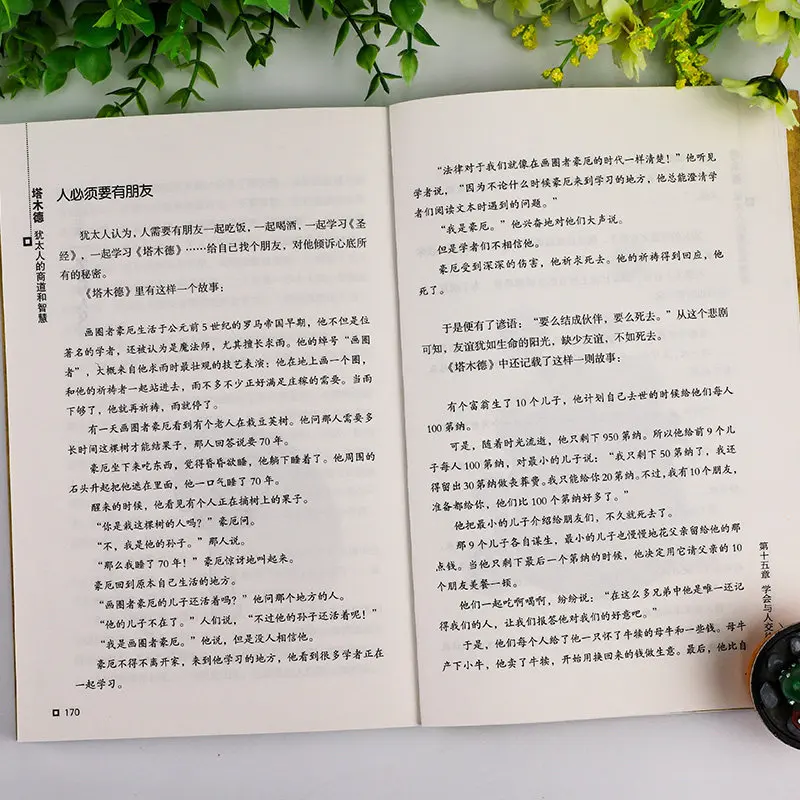 塔木德 犹太人的商道和智慧
人必须要有朋友
犹太人认为，人需要有朋友一起吃饭，一起喝酒，一起学习《圣
经》，一起学习《塔木德》……给自己找个朋友，对他倾诉心底所
有的秘密。
《塔木德》里有这样一个故事：
画圈者豪厄生活于公元前5世纪的罗马帝国早期，他不但是位
著名的学者，还被认为是魔法师，尤其擅长求雨。他的绰号“画圈
者”，大概来自他求雨时最壮观的技艺表演：他在地上画一个圈，
和他的祈祷者一起站进去，雨不多不少正好满足庄稼的需要。当雨
下够了，他就再祈祷，雨就停了。
有一天画圈者豪厄看到有个老人在栽豆荚树。他问那人需要多
长时间这棵树才能结果子，那人回答说要70年。
豪厄坐下来吃东西，觉得昏昏欲睡，他躺下睡着了。他周围的
石头升起把他遮在里面，他一口气睡了70年。
醒来的时候，他看见有个人正在摘树上的果子。
“你是栽这棵树的人吗？”豪厄问。
“不，我是他的孙子。”那人说。
“那么我睡了70年！”豪厄惊讶地叫起来。
豪厄回到原本自己生活的地方。
“画圈者豪厄的儿子还活着吗？”他问那个地方的人。
“他的儿子不在了。”人们说，“不过他的孙子还活着呢！”
“我是画圈者豪厄。”他说，但是没人相信他。
豪厄不得不离开家，来到他学习的地方，他看到很多学者正在
一起学习。
170
“法律对于我们就像在画圈者豪厄的时代一样清楚！”他听见
学者说，“因为不论什么时候豪厄来到学习的地方，他总能澄清学
者们阅读文本时遇到的问题。”
“我是豪厄。”他兴奋地对他们大声说。
但是学者们不相信他。
豪厄受到深深的伤害，他祈求死去。他的祈祷得到回应，他
死了。
于是便有了谚语：“要么结成伙伴，要么死去。”从这个悲剧
可知，友谊犹如生命的阳光，缺少友谊，不如死去。
《塔木德》中还记载了这样一则故事：
有个富翁生了10个儿子，他计划自己去世的时候给他们每人
100第纳。
可是，随着时光流逝，他只剩下950第纳。所以他给前9个儿
子每人100第纳，对最小的儿子说：“我只剩下50第纳了，我还
得留出30第纳做丧葬费。我只能给你20第纳。不过，我有10个朋友，
准备都给你，他们比100个第纳好多了。”
他把最小的儿子介绍给朋友们，不久就死去了。
那9个儿子各自谋生，最小的儿子也慢慢地花父亲留给他的那
点钱。当他只剩下最后一个第纳的时候，他决定用它请父亲的10
个朋友美餐一顿。
他们一起吃啊喝啊，纷纷说：“在这么多兄弟中他是唯一还记
得我们的人，让我们报答他对我们的好意吧。”
于是，他们每个人给了他一只怀了牛犊的母牛和一些钱。母牛
产下小牛，他卖了牛犊，开始用换回来的钱做生意。最后，他比自
第十五章 学会与人交